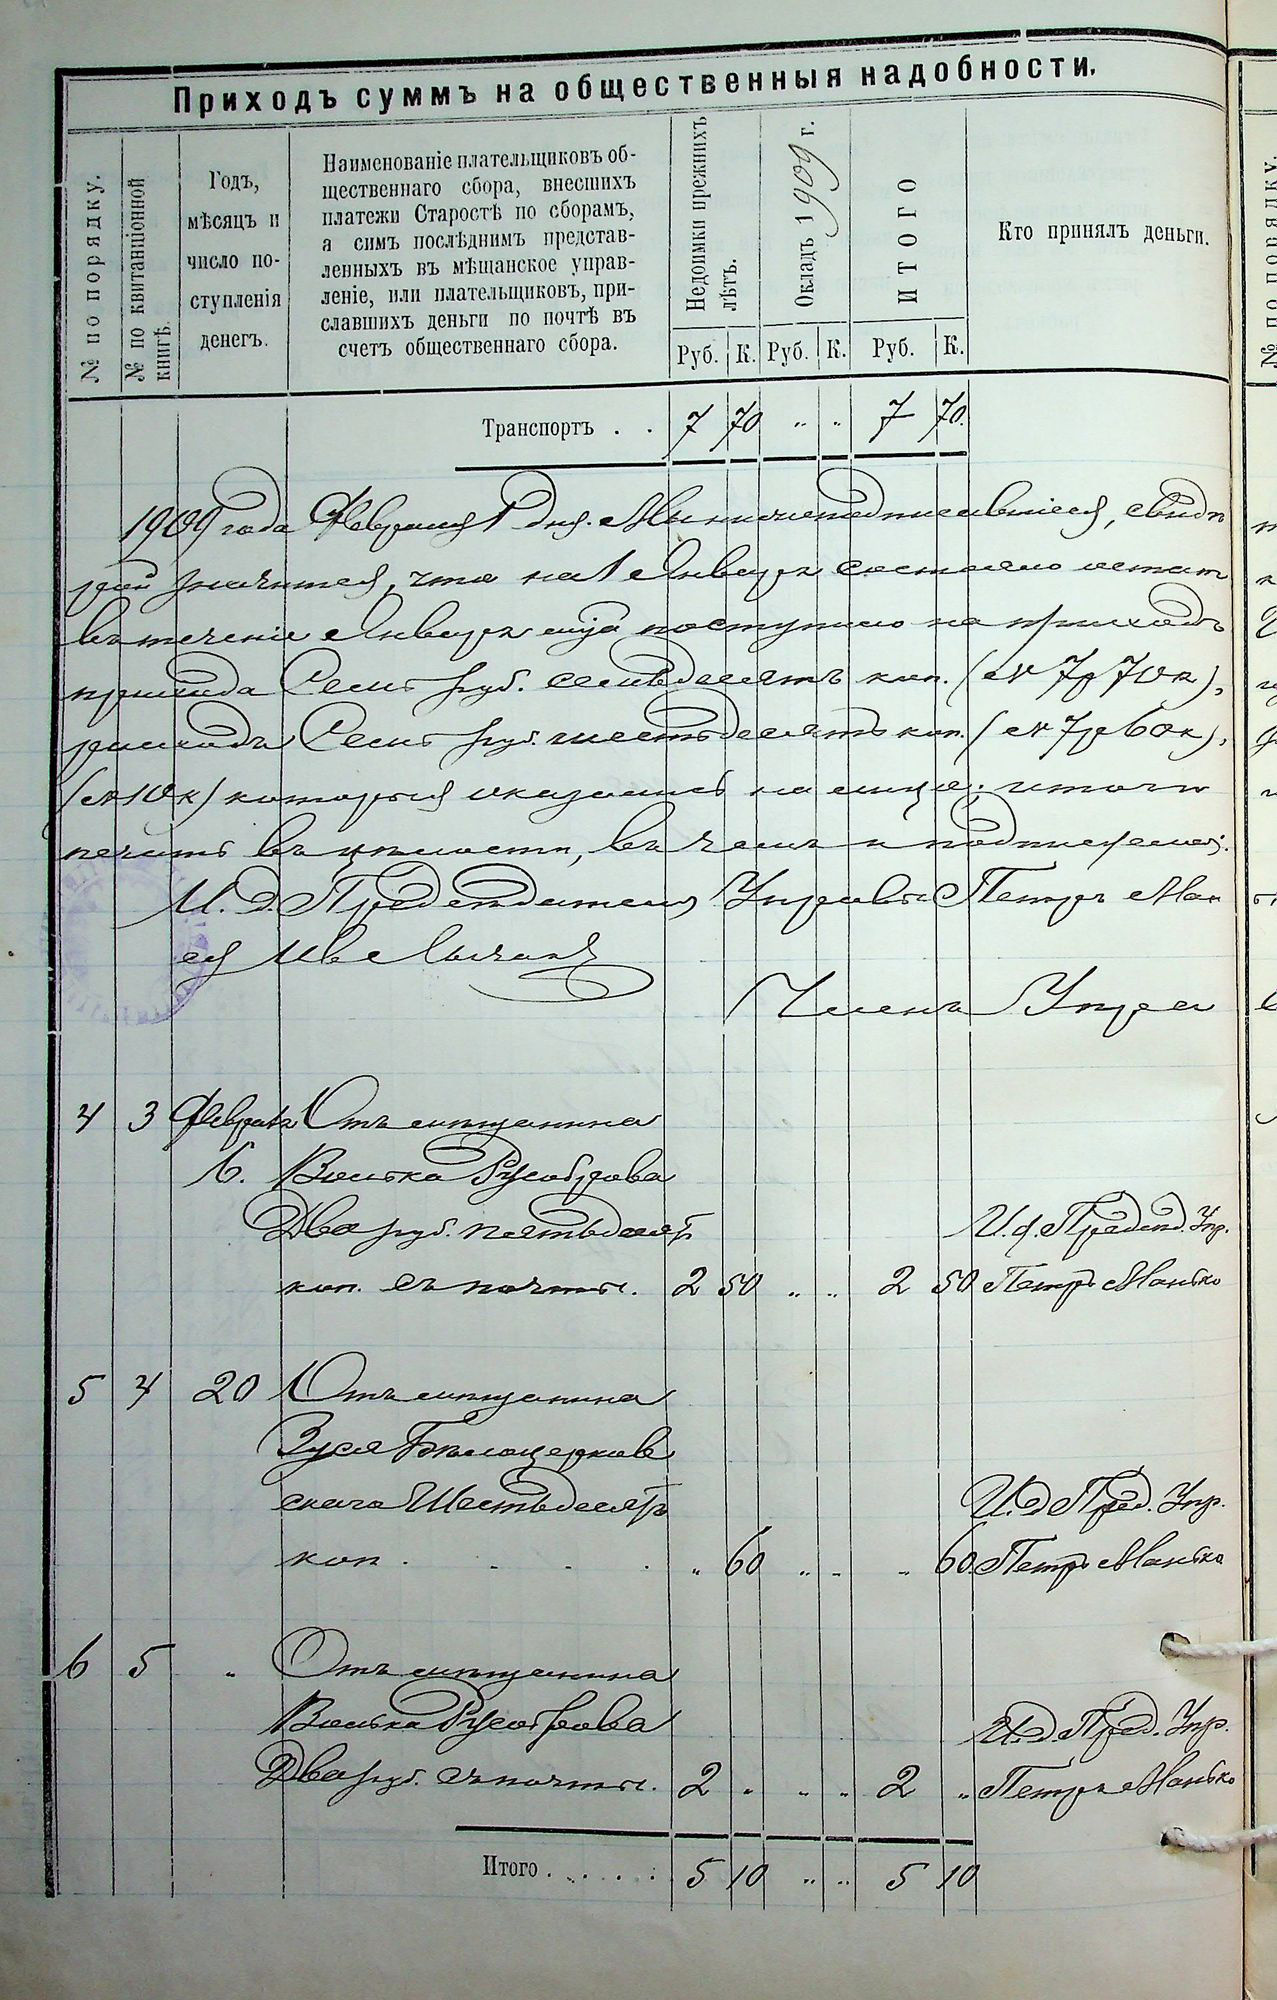 Приходъ суммъ на общественныя надобности.
№ по порядку.
№ по квитанціонной книгѣ.
Годъ,
мѣсяцъ и
число по-
ступленія
денегъ.
Наименованіе плательщиковъ об-
щественнаго сбора, внесшихъ
платежи Старостѣ по сборамъ,
а симъ послѣднимъ представ-
ленныхъ въ мѣщанское управ-
леніе, или плательщиковъ, при-
славшихъ деньги по почтѣ въ
счетъ общественнаго сбора.
Недоимки прежнихъ
лѣтъ.
Окладъ 1909 г.
ИТОГО
Кто принялъ деньги.
Руб. К. Руб. К. Руб. К.
Транспортъ . . 7 70 " " 7 70.
1909 года Февраля 1 дня. Мы нижеподписавшіеся, свидѣ
рой значится, что на 1 Января состояло остат
въ теченіе Января поступило на приходъ
прихода Семь руб. семьдесятъ коп. (7р 70к),
расходъ Семь руб. шестьдесятъ коп. (7р 60к),
(10к) которыя оказались на лицо;
печать въ цѣлости, въ чемъ и подписуемся:
И. д. Предсѣдателя Управы Петръ Ман
Членъ Упра
4 3 Февраля Отъ мѣщанина
6.
Два руб. пятьдесятъ И. д. Предсѣд. Упр.
коп. съ почты. 2 50 " " 2 50 Петръ Манько
5 4 20 Отъ мѣщанина
Зуся Бѣлоцерков
скаго Шестьдесятъ И. д. Пред. Упр.
коп. . . . " 60 " " " 60 Петръ Манько
6 5 " Отъ мѣщанина
И. д. Пред. Упр.
Два руб. съ почты. 2 " " " 2 " Петръ Манько
Итого . . . . . . 5 10 " " 5 10